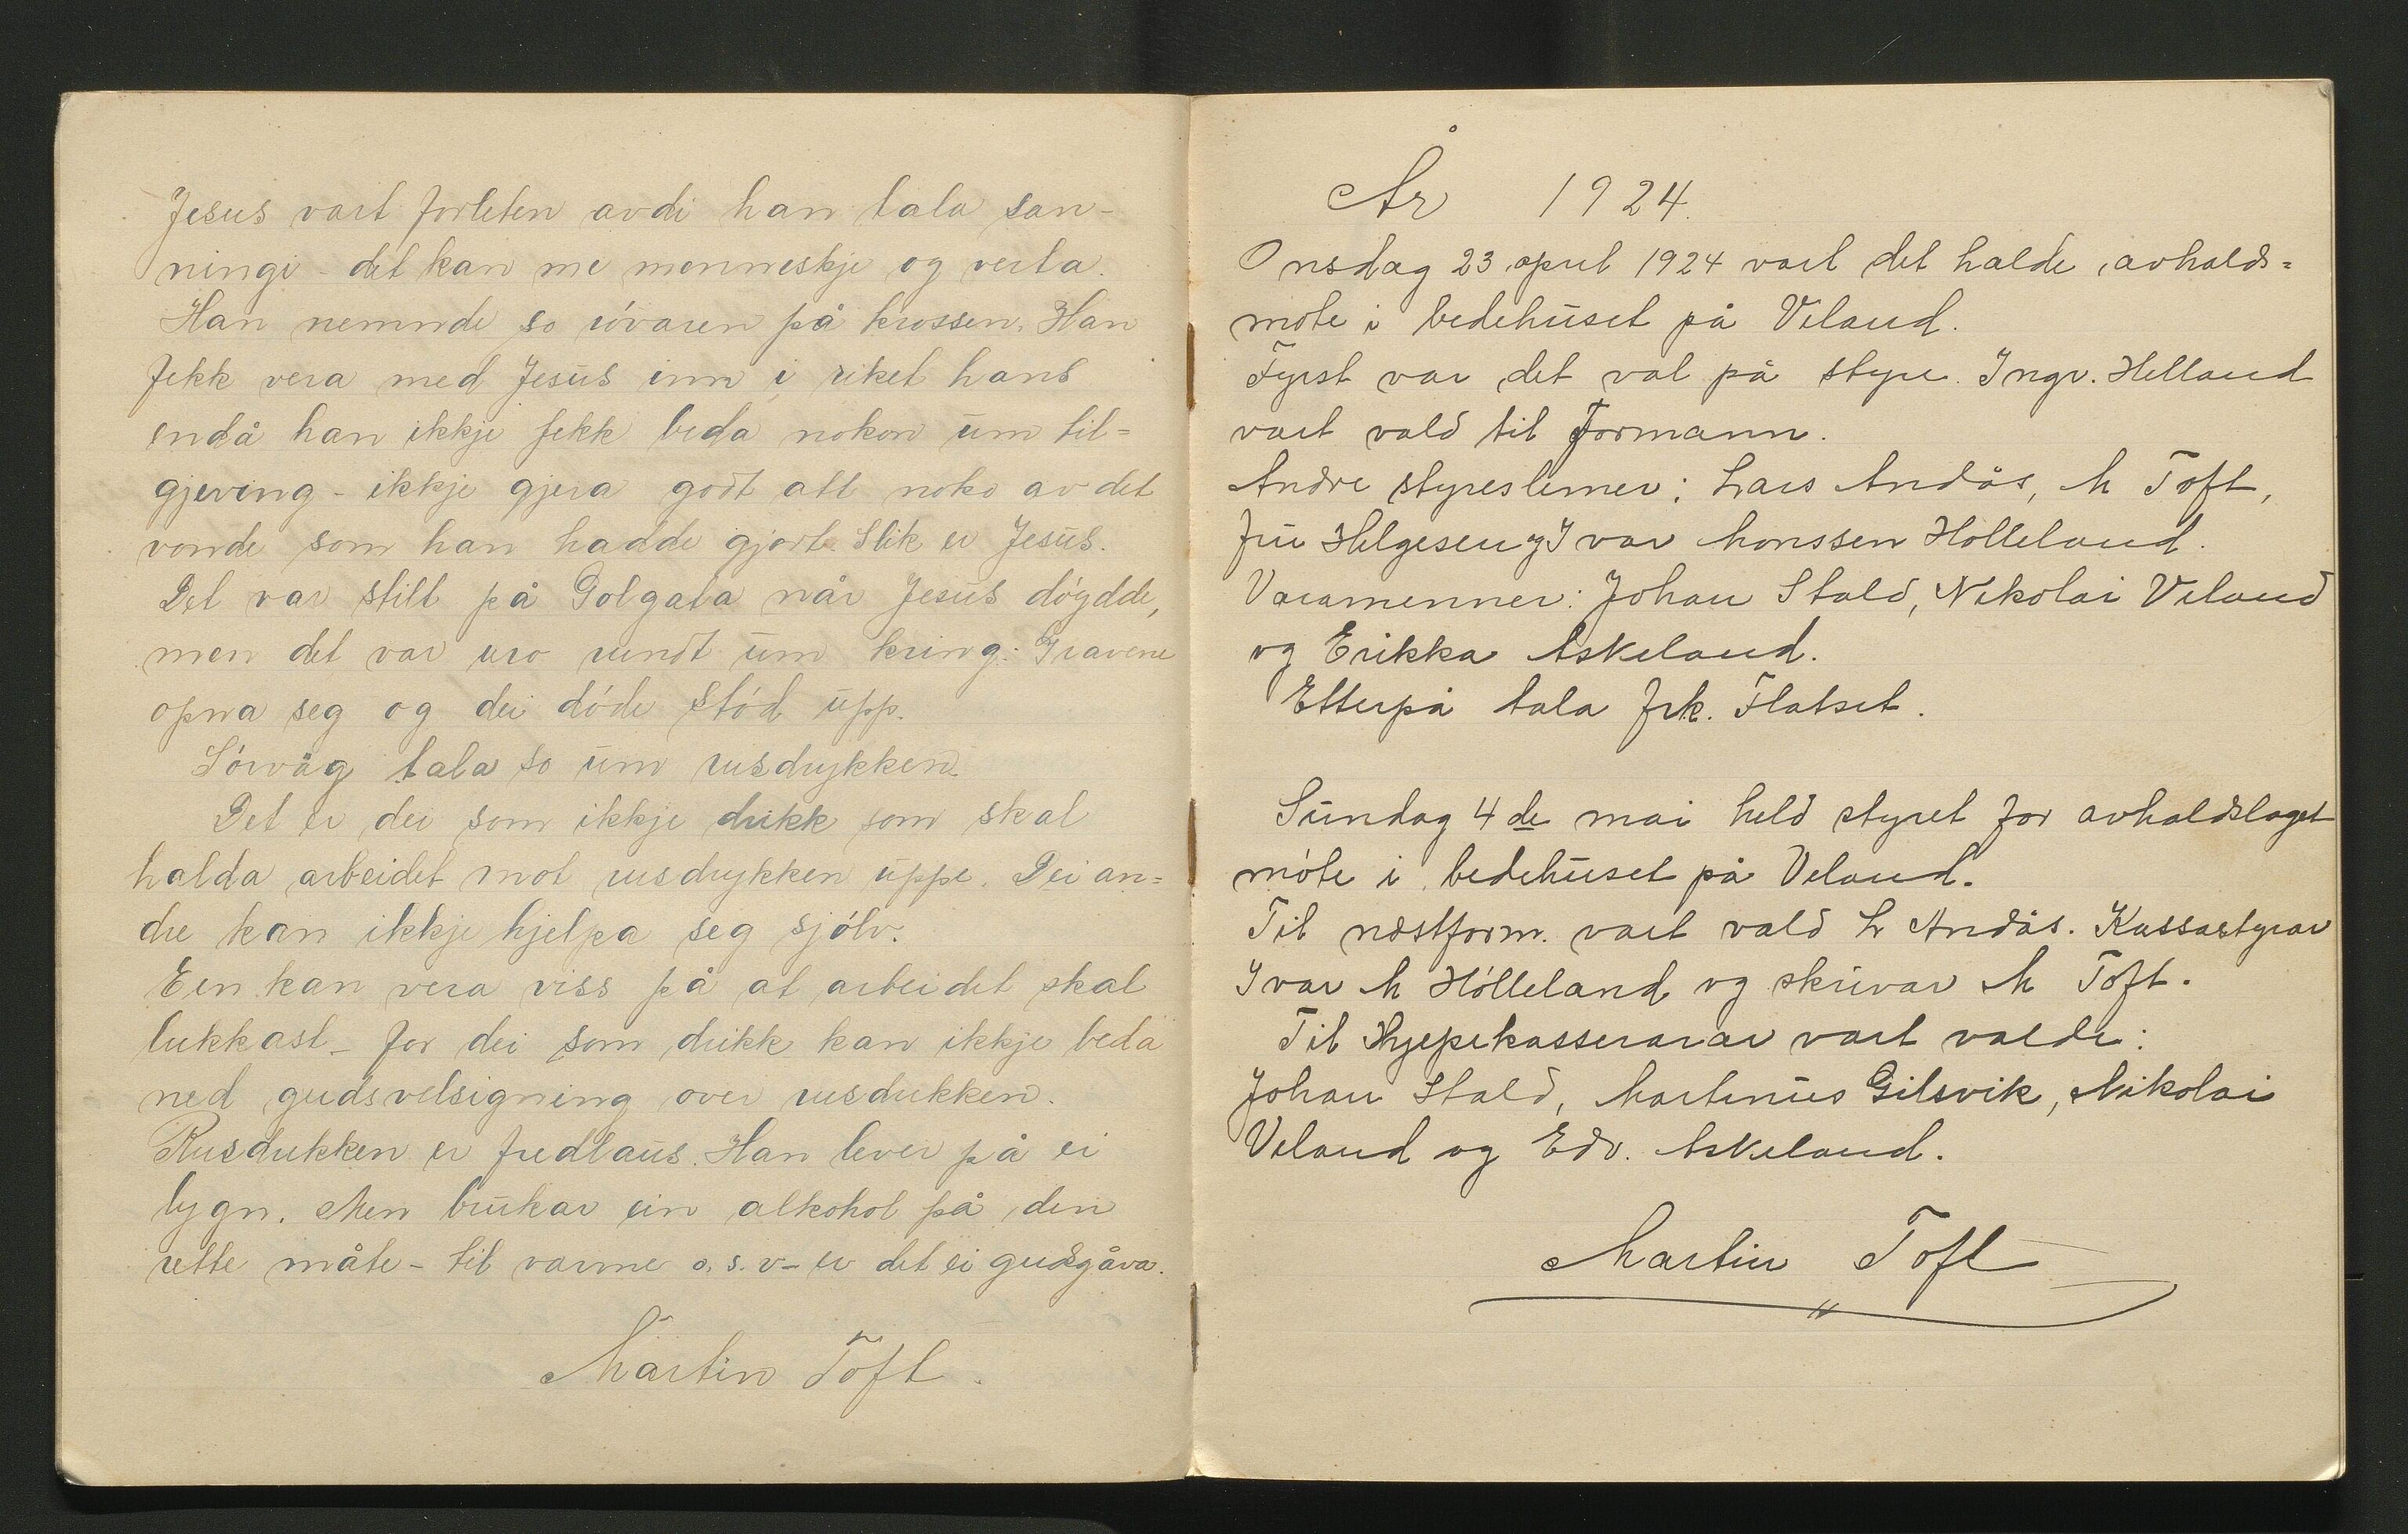 Jesus vart forleten avdi han tala san-
ningi - det kan me menneskje og verta.
Han nemnde so róvaren på krossen. Han
fekk vera med Jesus inn i riket hans
endå han ikkje fekk beda nokon um til=
gjeving - ikkje gjera godt att noko av det
vonde som han hadde gjort. Slik er Jesus.
Det var stilt på Golgata når Jesus dóydde,
men det var uro rundt um kring: Gravene
opna seg og dei dóde stód upp.
Sórvåg tala so um rusdrykken.
Det er dei som ikkje drikk som skal
halda arbeidet mot rusdrykken uppe. Dei an=
dre kan ikkje hjelpa seg sjólv.
Ein kan vera viss på at arbeidet skal
lukkast - for dei som drikk kan ikkje beda
ned gudsvelsigning over rusdrikken.
Rusdrikken er fredlaus. Han lever på ei
lygn. Men brukar ein alkohol på den
rette måte - til varme o. s. v - er det ei gudsgåva.
Martin Toft.
År 1924.
Onsdag 23 april 1924 vart det halde avhalds=
móte i bedehuset på Veland.
Fyrst var det val på styre. Ingv. Helland
vart vald til Formann.
Andre styreslemer: Lars Andås, M Toft,
fru Helgesen og Ivar Monssen Hólleland.
Varamenner: Johan Stald, Nikolai Veland
og Erikka Askeland.
Etterpå tala frk. Flatset.
Sundag 4 de mai held styret for avhaldslaget
móte i bedehuset på Veland.
Til næstform. vart vald L Andås. Kassastyrar
Ivar M Hólleland og skrivar M Toft.
Til Hjepekasserarar vart valde:
Johan Stald, Martinus Gilsvik, Nikolai
Veland og Edv. Askeland.
Martin Toft
"